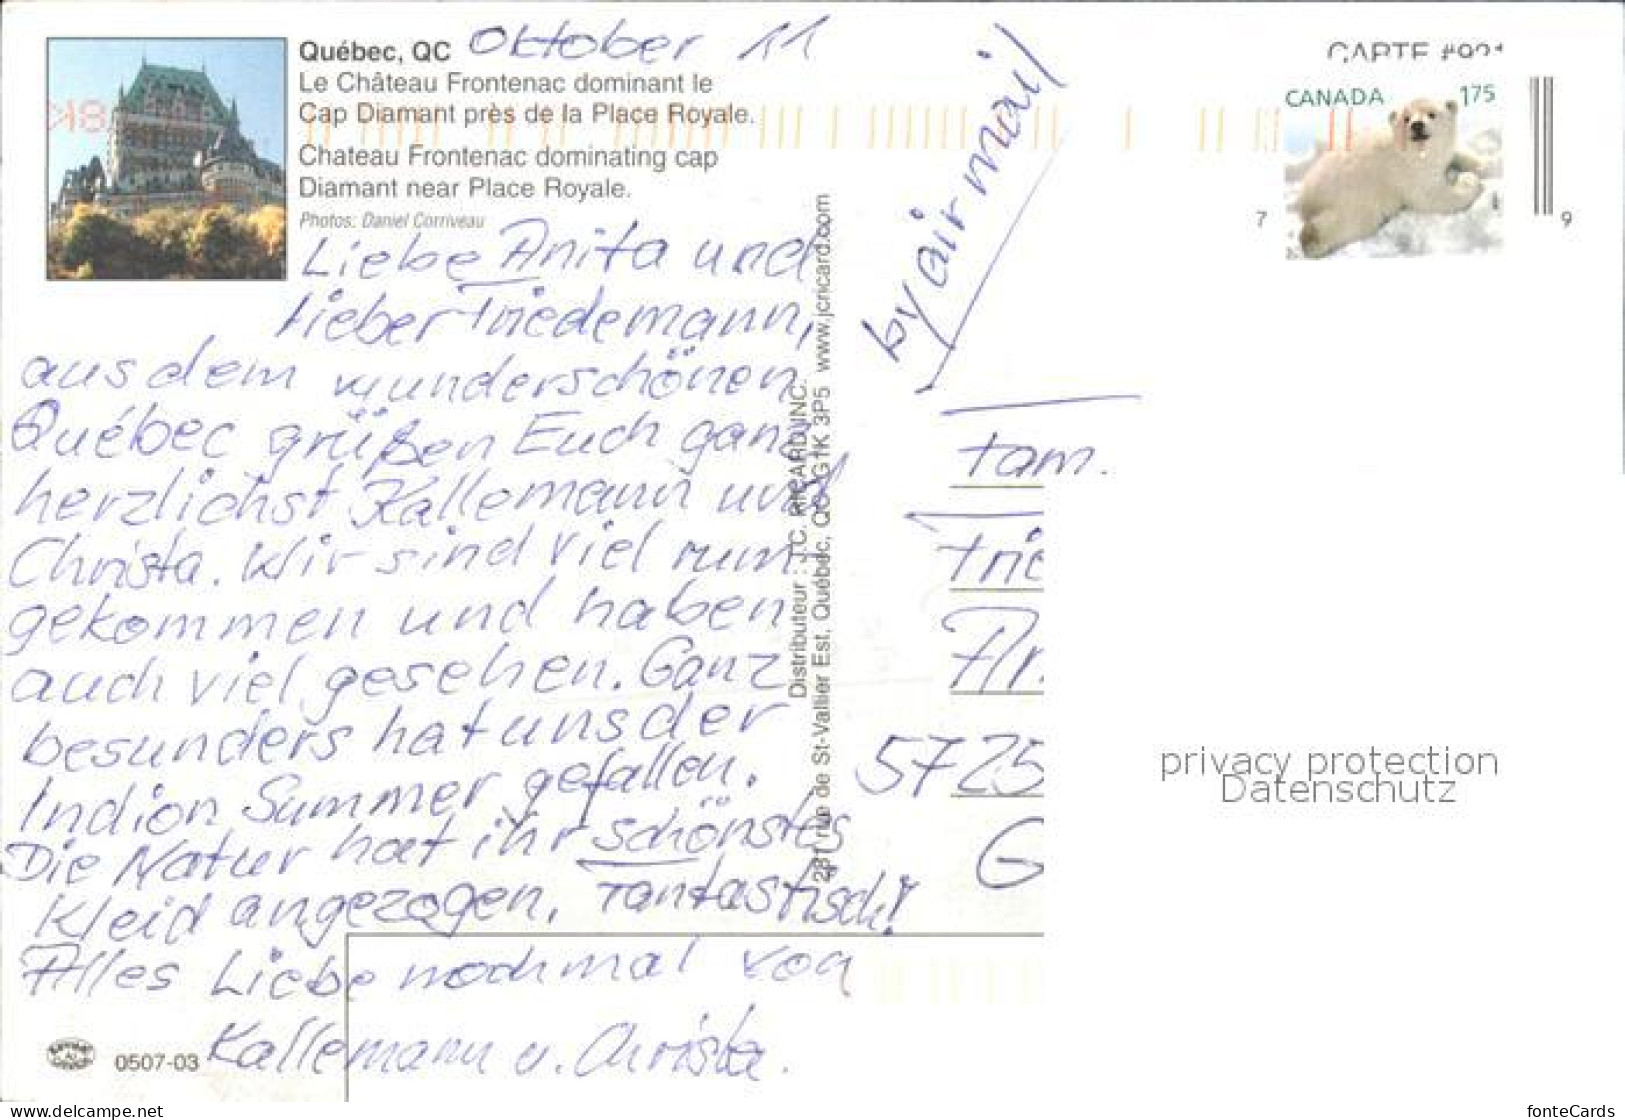 Québec, QC Oktober 11
Le Château Frontenac dominant le
Cap Diamant près de la Place Royale.
Chateau Frontenac dominating cap
Diamant near Place Royale.
Photos: Daniel Corriveau
Liebe Anita und
lieber Friedemann,
aus dem wunderschönen
Québec grüßen Euch ganz
herzlichst Kallemann und
Christa. Wir sind viel rum
gekommen und haben
auch viel gesehen. Ganz
besunders hat uns der
Indion Summer gefallen.
Die Natur hat ihr schönstes
Kleid angezogen. Fantastisch!
Alles Liebe nochmal von
Kallemann u. Christa.
0507-03
Distributeur : J.C. RICARD INC.
281 rue de St-Vallier Est, Québec, QC G1K 3P5 www.jcricard.com
by air mail
CANADA 175
7 9
Fam.
Frie
An
5725
G
privacy protection
Datenschutz
www.delcampe.net
fonteCards